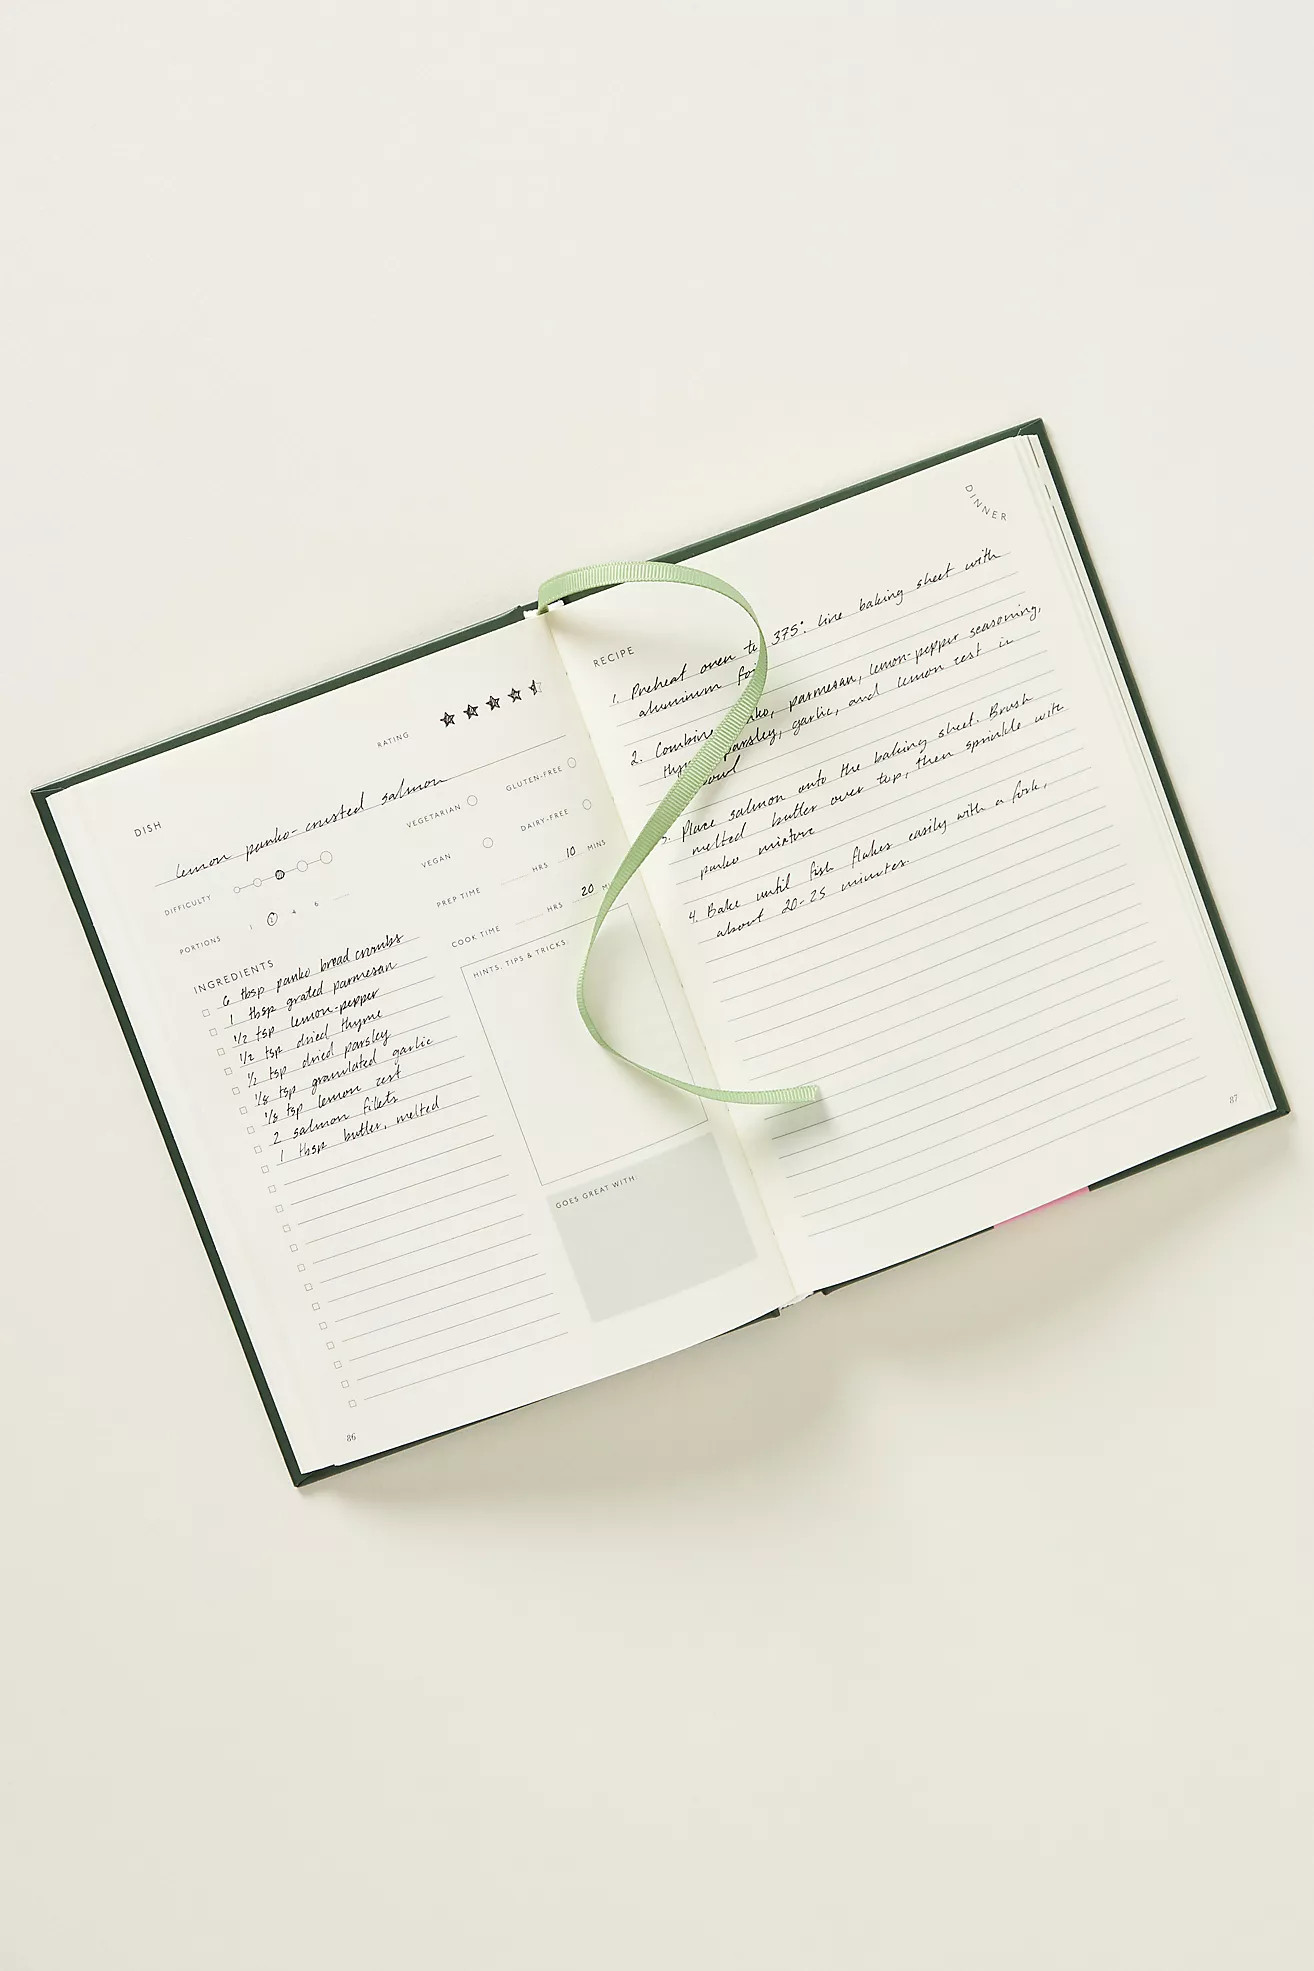 DISH
lemon panko-crusted salmon
RATING
DIFFICULTY
PORTIONS
1 2 4 6
VEGETARIAN
GLUTEN-FREE
VEGAN
DAIRY-FREE
PREP TIME HRS 10 MINS
COOK TIME HRS 20 M
INGREDIENTS
6 tbsp panko bread crumbs
1 tbsp grated parmesan
1/2 tsp lemon-pepper
1/2 tsp dried thyme
1/2 tsp dried parsley
1/8 tsp granulated garlic
1/8 tsp lemon zest
2 salmon filets
1 tbsp butter, melted
HINTS, TIPS & TRICKS
GOES GREAT WITH
86
DINNER
RECIPE
1. Preheat oven to 375°. Line baking sheet with
aluminum foi
2. Combine ko, parmesan, lemon-pepper seasoning,
thy parsley, garlic, and lemon zest in
bowl
3. Place salmon onto the baking sheet. Brush
melted butter over top, then sprinkle with
panko mixture
4. Bake until fish flakes easily with a fork,
about 20-25 minutes.
87